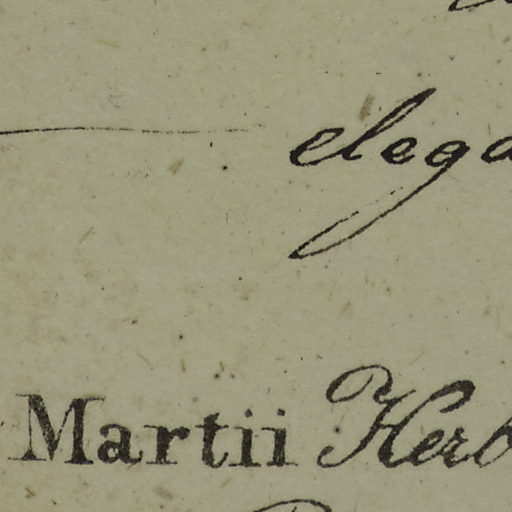 elega
Martii Herb